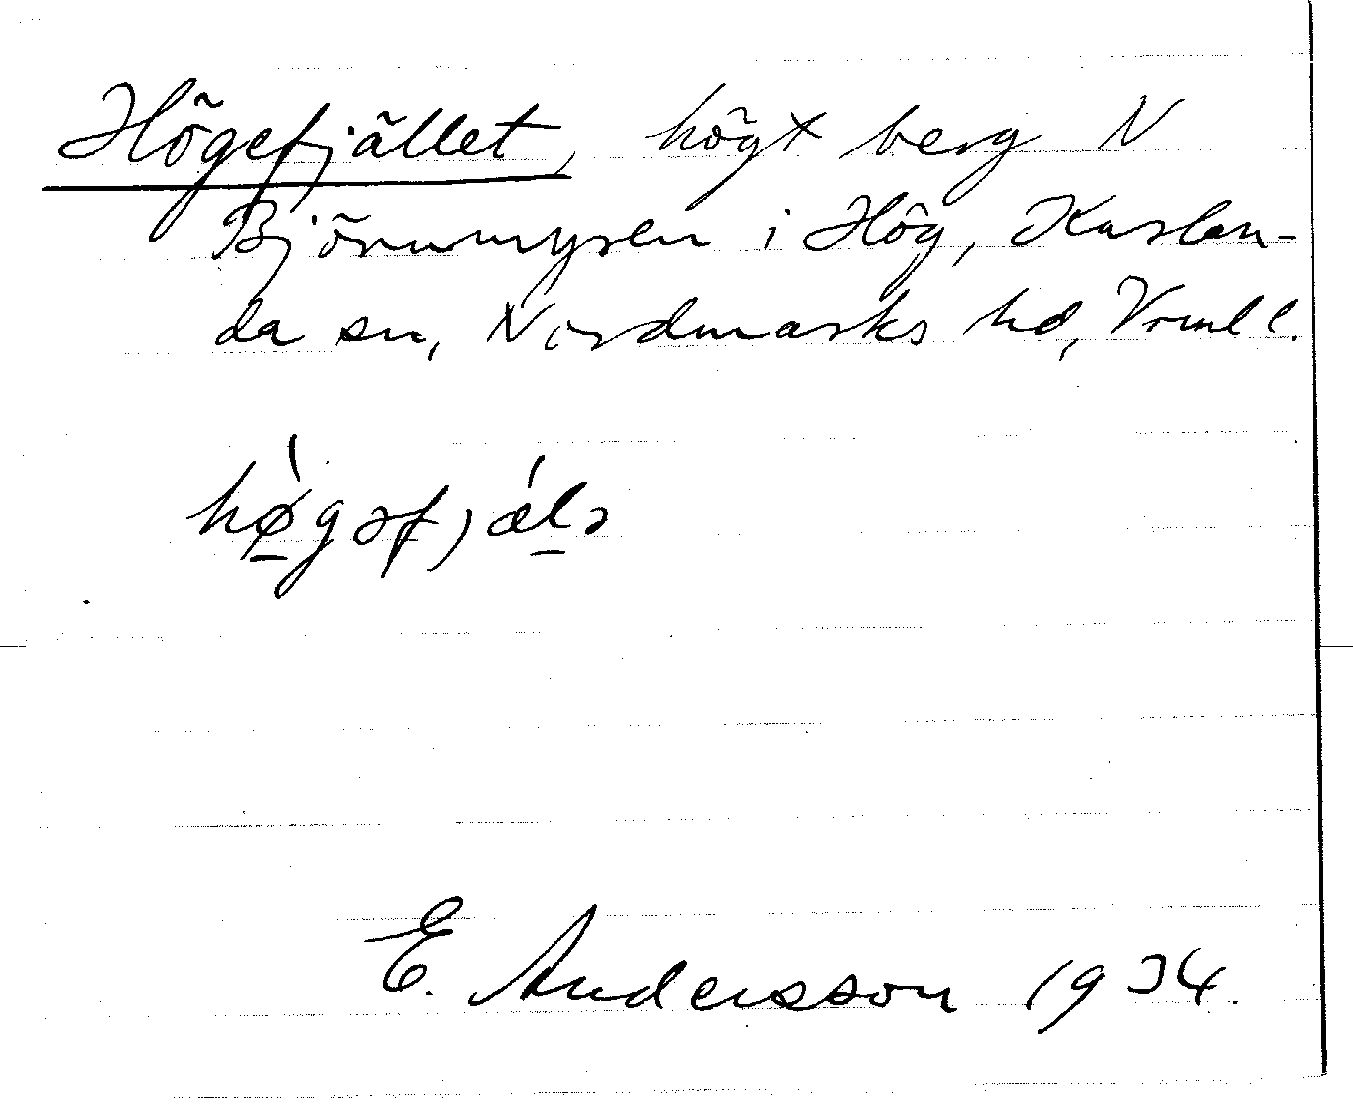 Högefjället, högt berg N
Björnmyren i Hög, Karlan-
da sn, Nordmarks hd, Vrml l.
hø̠̀gəfjǽl̠ə
E. Andersson 1934.